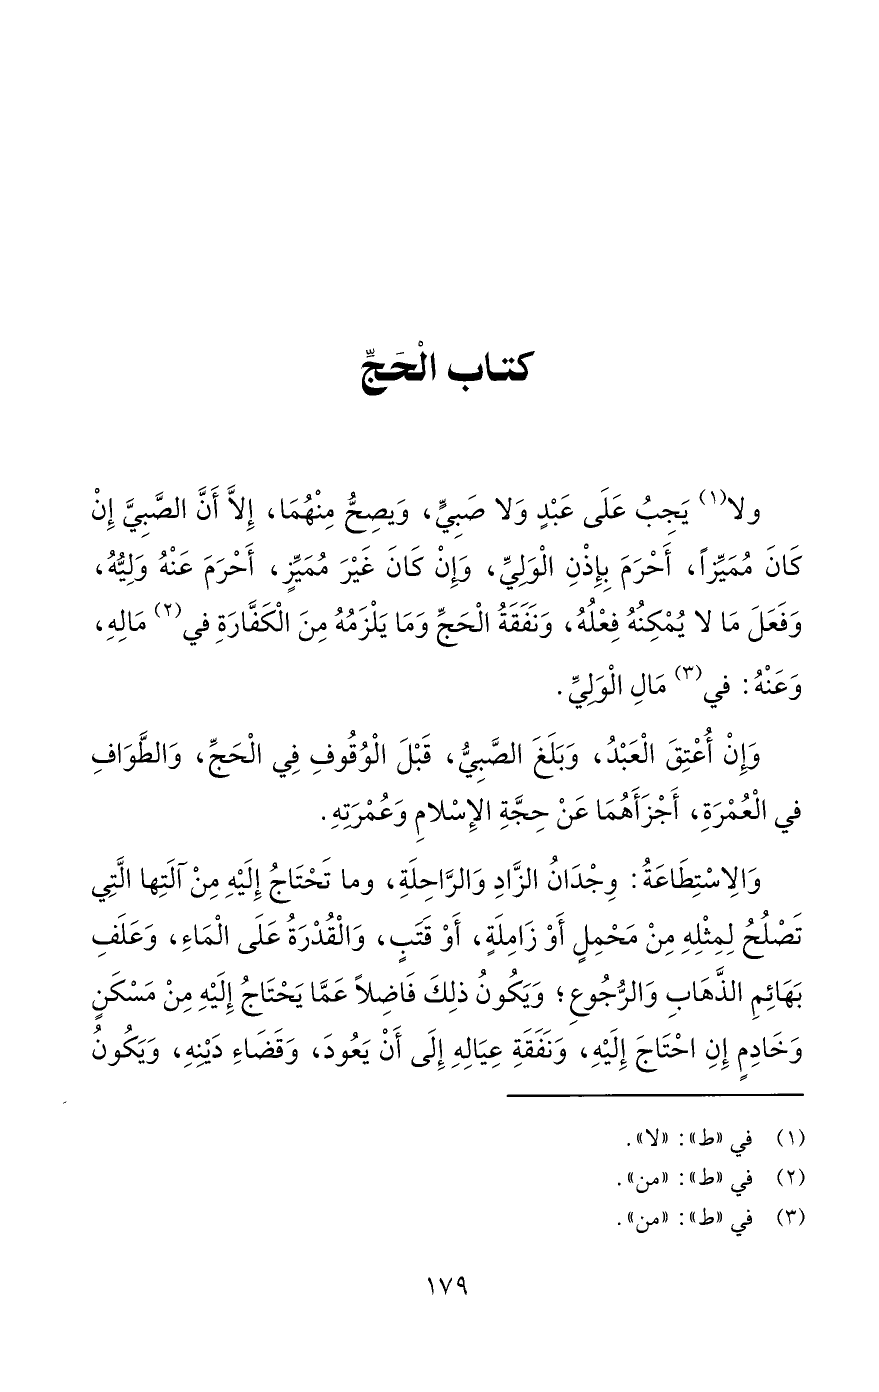 كتاب الْحَجِّ
ولا(١) يَجِبُ عَلَى عَبْدٍ وَلا صَبِيٍّ، وَيصِحُّ مِنْهُمَا، إِلاَّ أَنَّ الصَّبِيَّ إِنْ
كَانَ مُمَيِّزاً، أَحْرَمَ بِإِذْنِ الْوَلِيِّ، وَإِنْ كَانَ غَيْرَ مُمَيِّزٍ، أَحْرَمَ عَنْهُ وَلِيُّهُ،
وَفَعَلَ مَا لا يُمْكِنُهُ فِعْلُهُ، وَنَفَقَةُ الْحَجِّ وَمَا يَلْزَمُهُ مِنَ الْكَفَّارَةِ في(٢) مَالِهِ،
وَعَنْهُ: في(٣) مَالِ الْوَلِيِّ.
وَإِنْ أُعْتِقَ الْعَبْدُ، وَبَلَغَ الصَّبِيُّ، قَبْلَ الْوُقُوفِ فِي الْحَجِّ، وَالطَّوَافِ
في الْعُمْرَةِ، أَجْزَأَهُمَا عَنْ حِجَّةِ الإِسْلامِ وَعُمْرَتِهِ.
وَالِاسْتِطَاعَةُ: وِجْدَانُ الزَّادِ وَالرَّاحِلَةِ، وما تَحْتَاجُ إِلَيْهِ مِنْ آلَتِها الَّتِي
تَصْلُحُ لِمِثْلِهِ مِنْ مَحْمِلٍ أَوْ زَامِلَةٍ، أَوْ قَتَبٍ، وَالْقُدْرَةُ عَلَى الْمَاءِ، وَعَلَفِ
بَهَائِمِ الذَّهَابِ وَالرُّجُوعِ؛ وَيَكُونُ ذلِكَ فَاضِلاً عَمَّا يَحْتَاجُ إِلَيْهِ مِنْ مَسْكَنٍ
وَخَادِمٍ إِنِ احْتَاجَ إِلَيْهِ، وَنَفَقَةِ عِيَالِهِ إِلَى أَنْ يَعُودَ، وَقَضَاءِ دَيْنِهِ، وَيَكُونُ
(١) في «ط»: «لا».
(٢) في «ط»: «من».
(٣) في «ط»: «من».
١٧٩